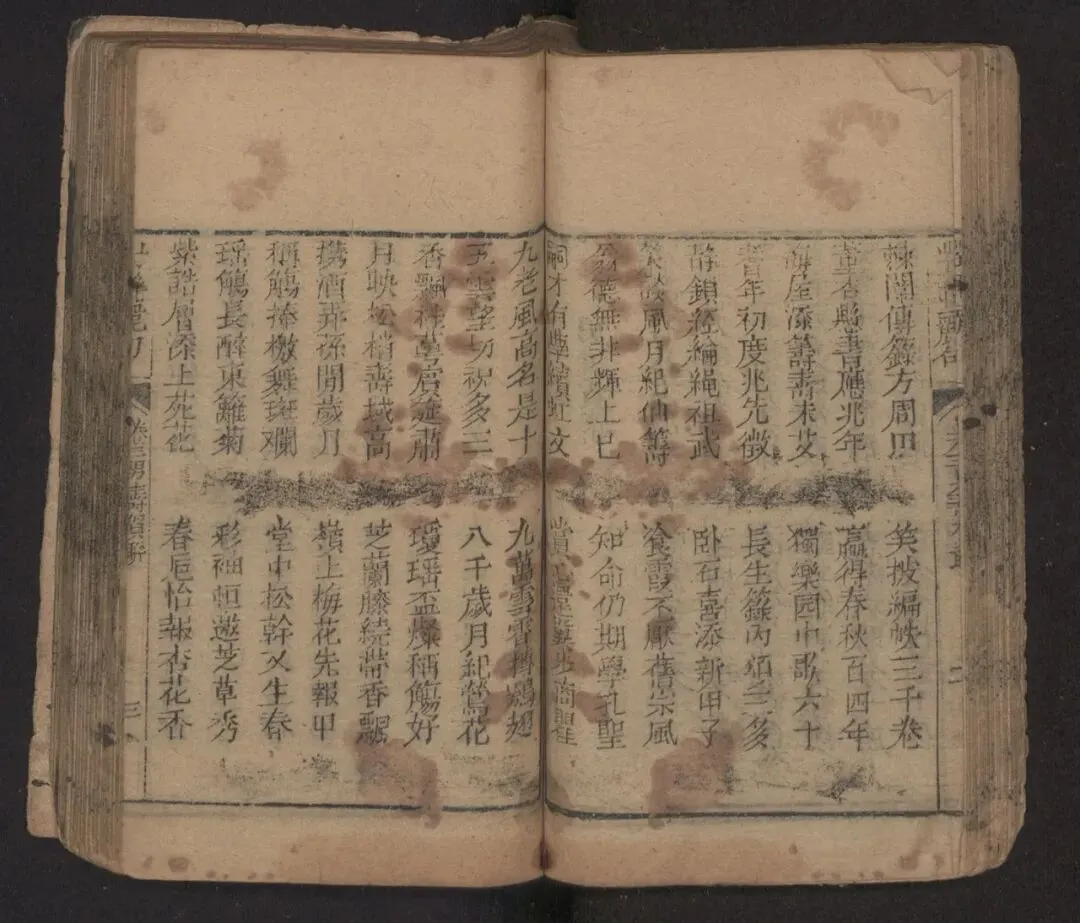 閣傳籙方周甲
杏懸書應兆年
海屋添籌壽未艾
耆年初度兆先徵
鎖經綸繩祖武
談風月紀仙籌
翁德無非輝上巳
嗣才有典
笑披編帙三千卷
贏得春秋百四年
獨樂园中歌六十
長生籙內頌三多
卧石喜添新甲子
飡霞不厭舊宗風
知命仍期學孔聖
九老風高名是十
五雲望切祝多三
香飄桂蕚筵肅
月映松梢壽域高
攜酒弄孫閒歲月
稱觴捧檄舞斑斕
瑶觴長醉東籬菊
紫誥層添上苑花
九萬雲霄摶鵾翅
八千歲月紀鶯花
瓊瑤盃燦稱觴好
芝蘭藤繞帶香飄
嶺上梅花先報甲
堂中松幹又生春
彩袖恒邀芝草秀
春巵怡報杏花香
卷三男壽賀聯
三